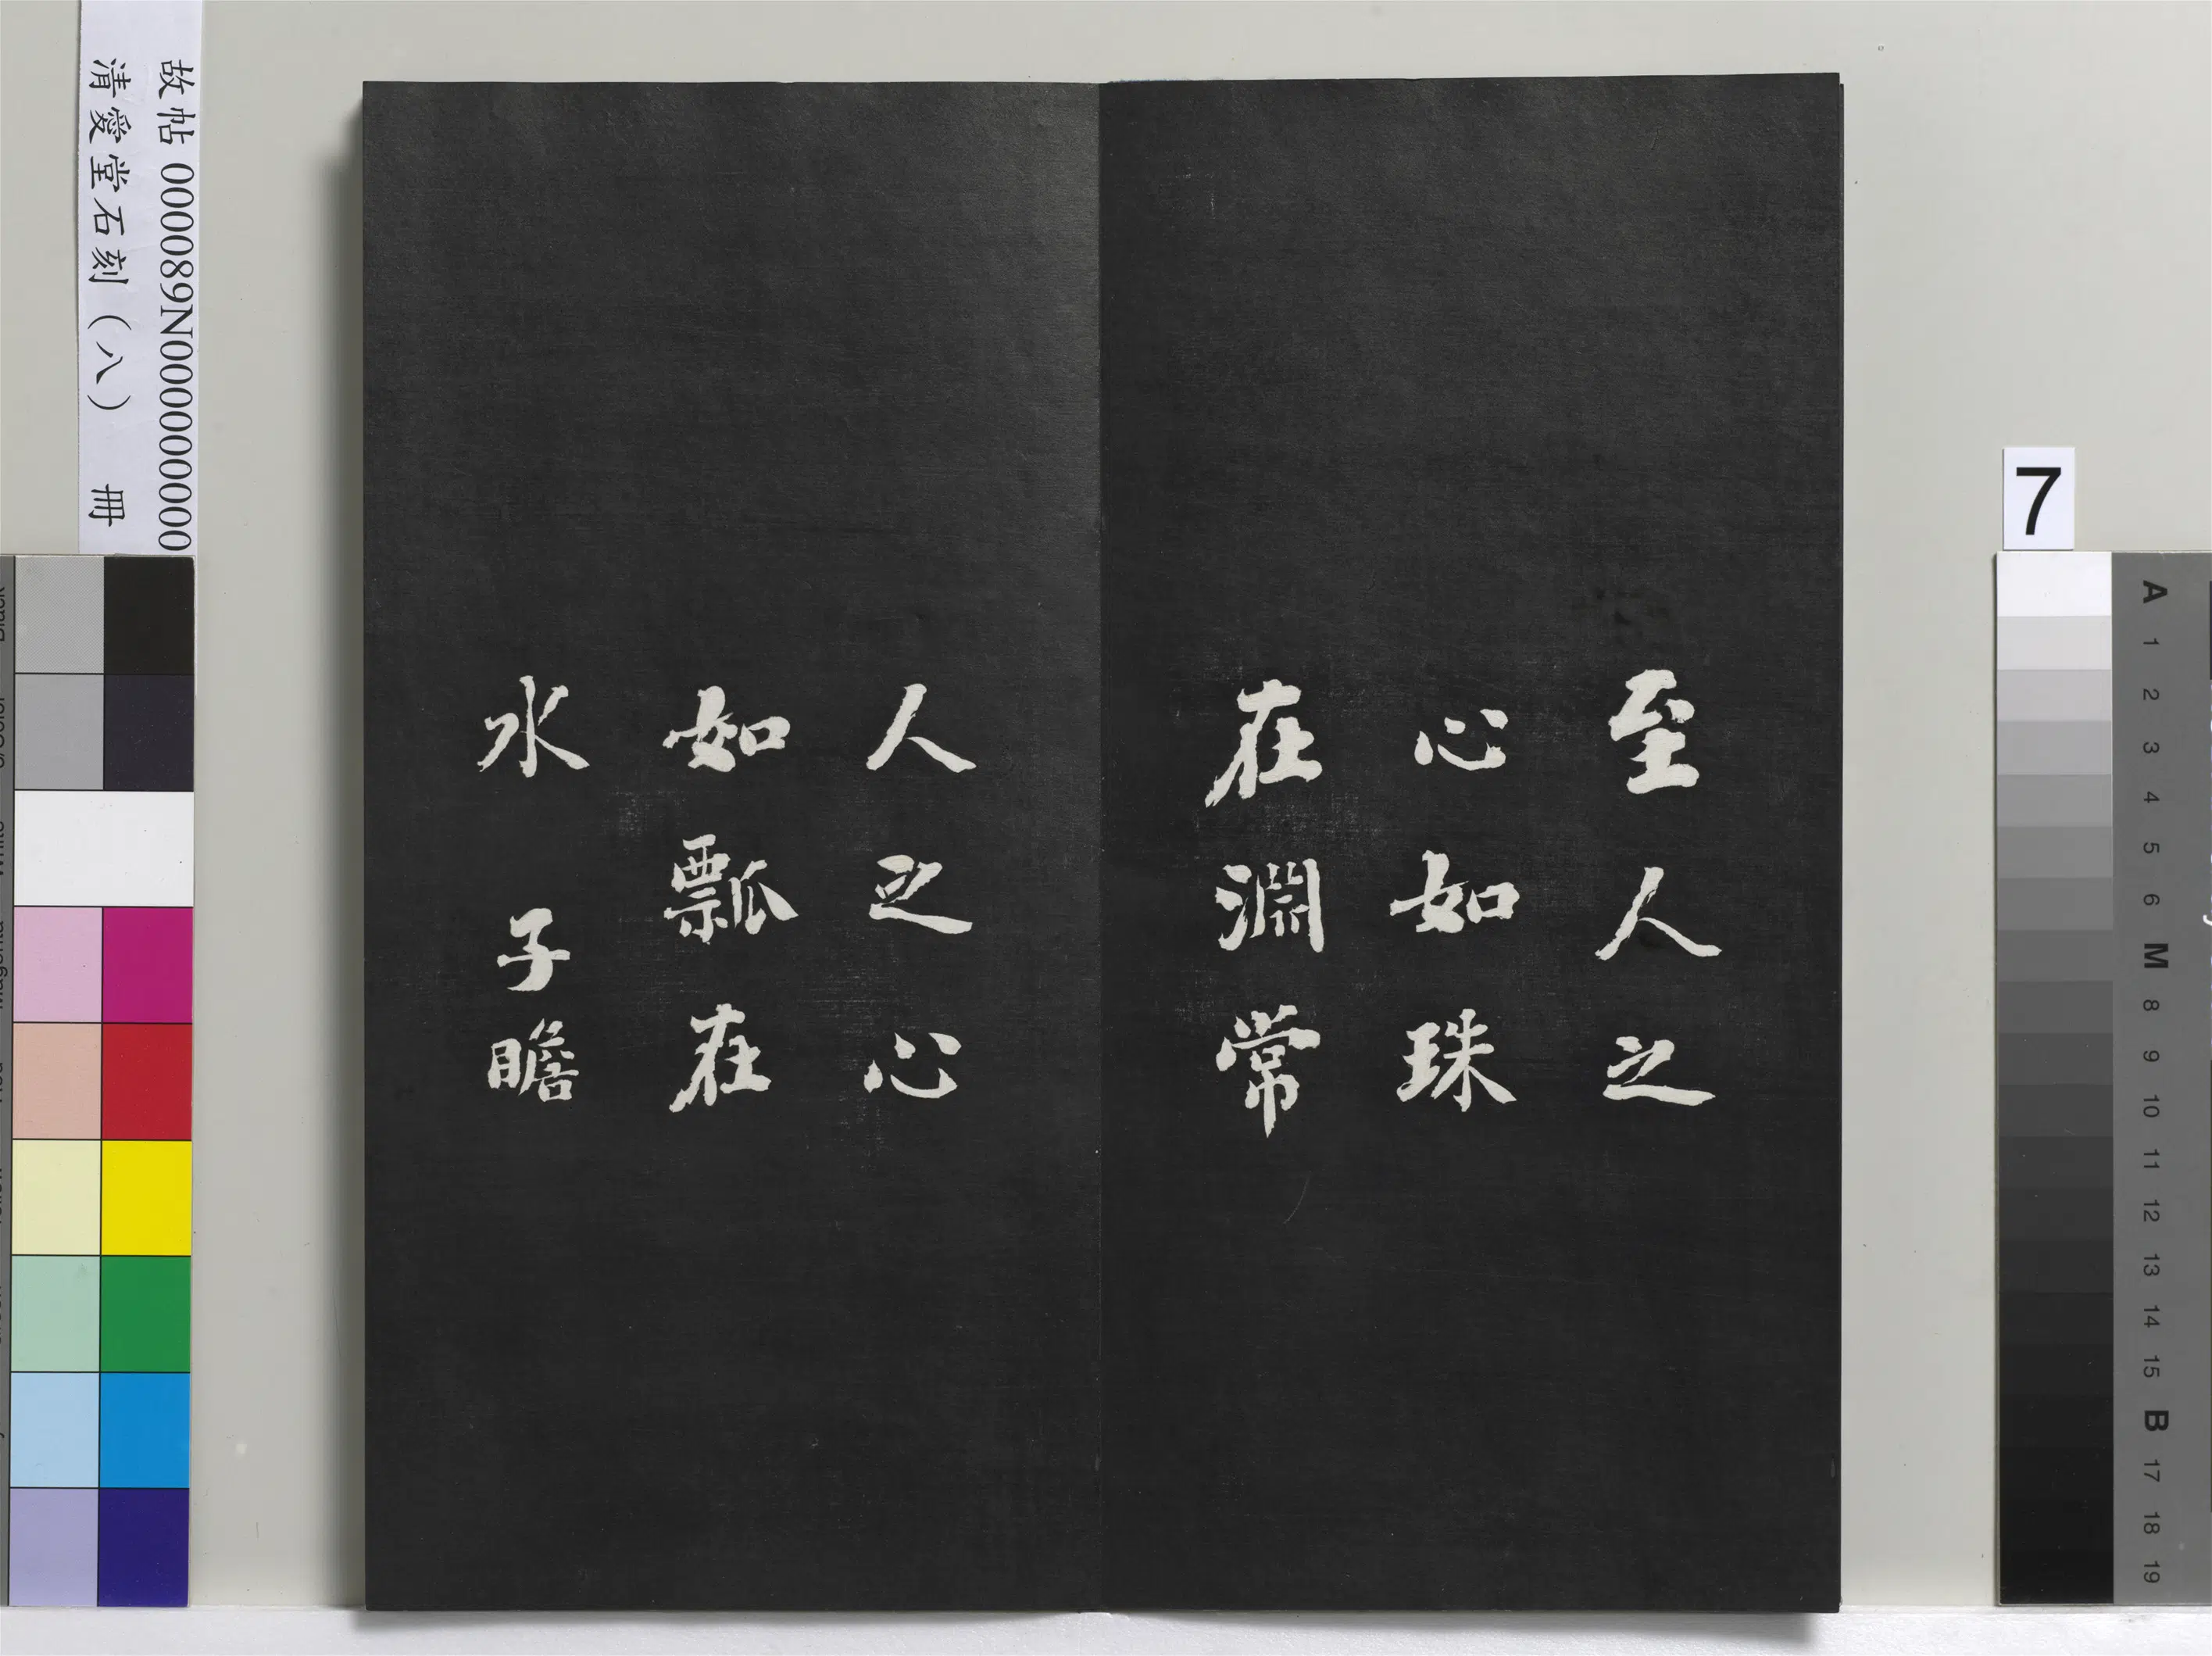 至人之
心如珠
在淵常
人之心
如瓢在
水 子瞻
故帖 000089N000000000
清愛堂石刻(八) 冊
7
A 1 2 3 4 5 6 M 8 9 10 11 12 13 14 15 B 17 18 19